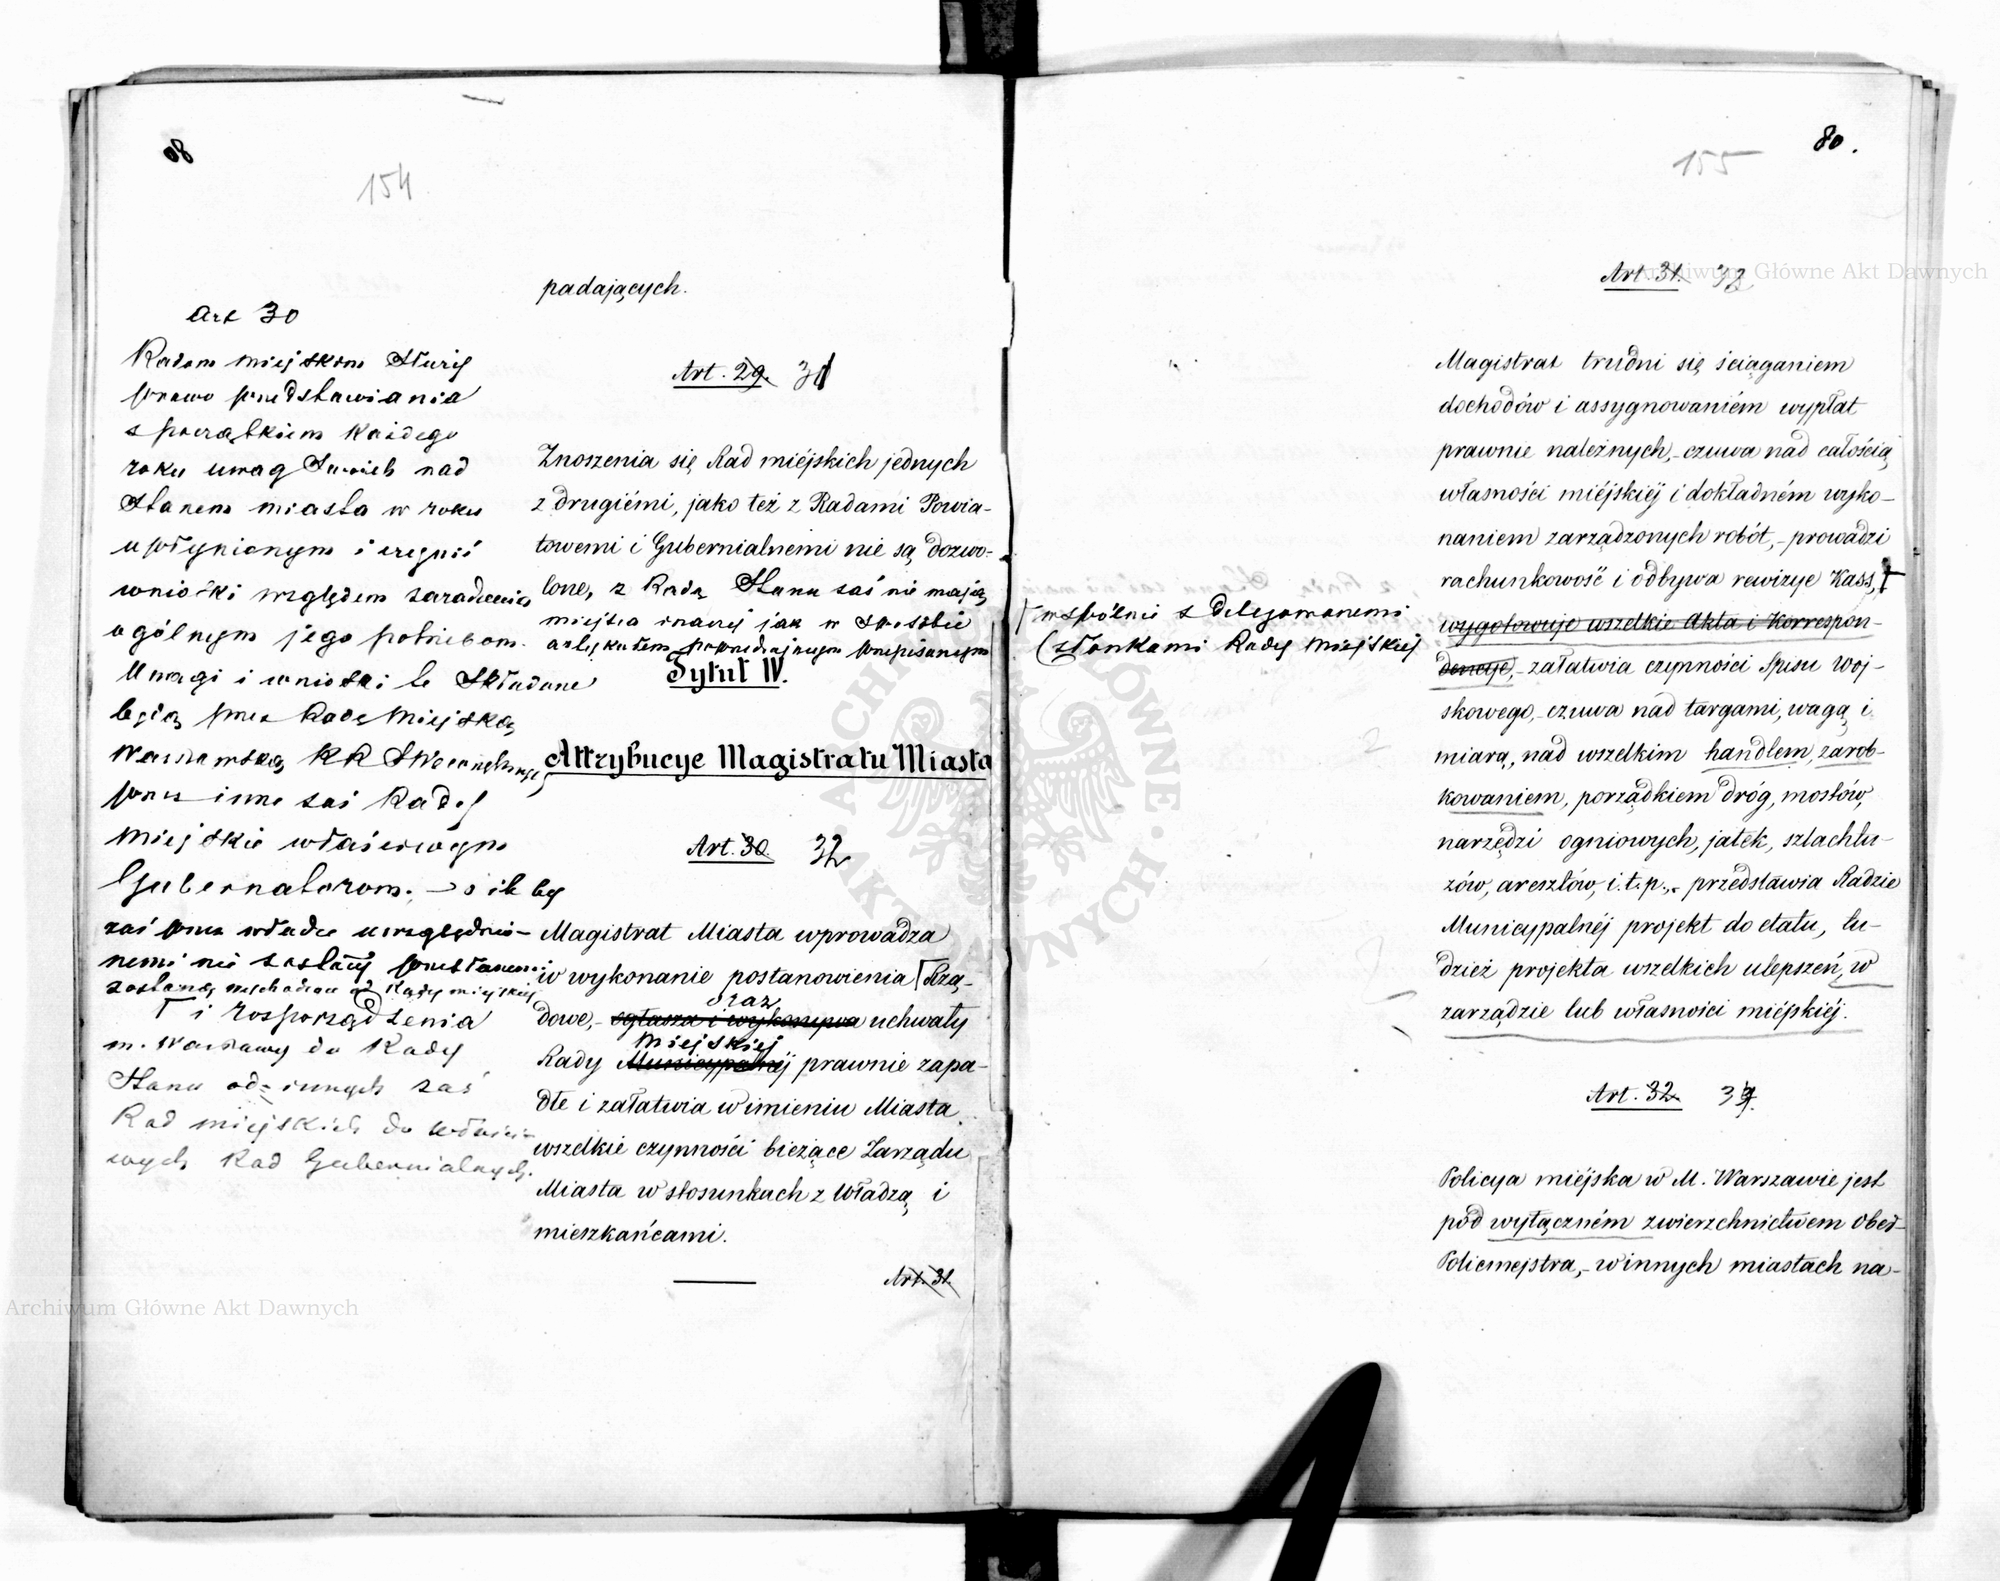 80
154
Art 30
Radom miejskim służy
prawo przedstawiania
z początkiem każdego
roku uwag swoich nad
stanem miasta w roku
upłynionym i czynić
wnioski względem zaradzenia
ogólnym jego potrzebom.
Uwagi i wnioski te składane
będą przez Radę Miejską
Warszawską KR SWewnętrznych
przez inne zaś Rady
Miejskie właściwym
Gubernatorom. – i ileby
zaś przez władze uwzględnio-
nemi nie zostały przesłanemi
zostaną
i rozporządzenia
m. Warszawy do Rady
Stanu od innych zaś
Rad miejskich do właści-
wych Rad Gubernialnych.
padających.
Art. 29. 31
Znoszenia się Rad miéjskich jednych
z drugiémi, jako też z Radami Powia-
towemi i Gubernialnemi nie są dozwo-
lone, z Radą Stanu zaś nie mają
miejsca inaczej jak w sposobie
artykułem poprzedzającym przepisanym
Tytuł IV.
Attrybucye Magistratu Miasta
Art. 30. 32
Magistrat Miasta wprowadza
w wykonanie postanowienia Rzą-
oraz
dowe,- ogłasza i wykonywa uchwały
Miejskiej
Rady Municypalnéj prawnie zapa-
dłe i załatwia w imieniu Miasta
wszelkie czynności bieżące Zarządu
Miasta w stosunkach z Władzą i
mieszkańcami.
Art. 31.
80.
155
Art. 31. 33
Magistrat trudni się ściąganiem
dochodów i assygnowaniém wypłat
prawnie należnych,- czuwa nad całością
własności miéjskiéj i dokładném wyko-
naniem zarządzonych robót,- prowadzi
rachunkowość i odbywa rewizye Kass,
wspólnie z delegowanemi
Członkami Rady Miejskiej
wygotowuje wszelkie Akta i Korrespon-
dencye,- załatwia czynności Spisu Woj-
skowego,- czuwa nad targami, wagą i
miarą, nad wszelkim handlem, zarob-
kowaniem, porządkiem dróg, mostów,
narzędzi ogniowych, jatek, szlachtu-
zów, aresztów, i.t.p.,- przedstawia Radzie
Municypalnéj projekt do etatu, tu-
dzież projekta wszelkich ulepszeń, w
zarządzie lub własności miéjskiéj.
Art. 32. 34
Policya miéjska w M. Warszawie jest
pod wyłączném zwierzchnictwem Ober-
Policmejstra,- w innych miastach na-
Archiwum Główne Akt Dawnych
Archiwum Główne Akt Dawnych
ARCHIWUM GŁÓWNE AKT DAWNYCH